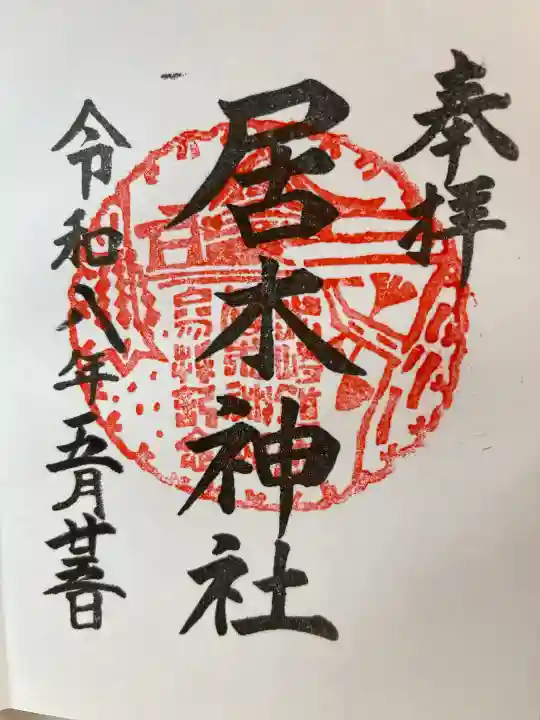 奉拝
居木神社
令和八年五月廿五日